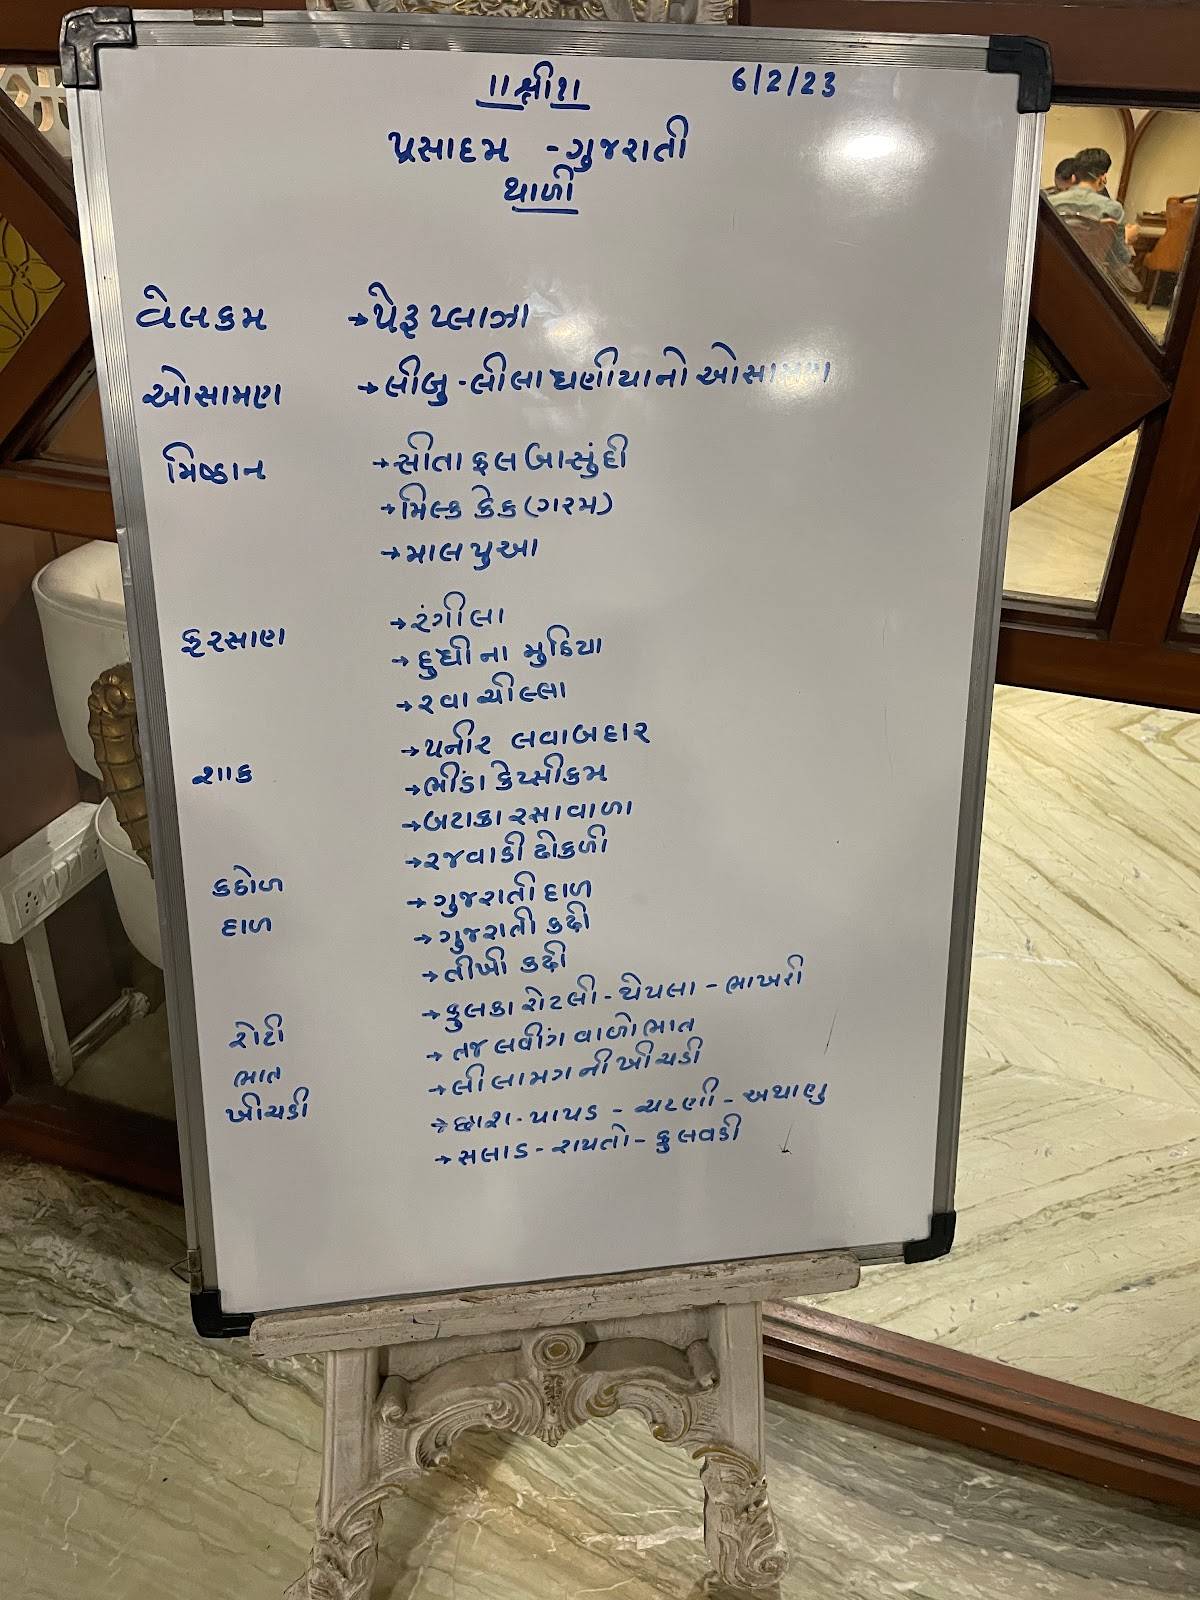 ॥શ્રી॥ 6/2/23
પ્રસાદમ - ગુજરાતી
થાળી
વેલકમ → પેરૂ પ્લાઝા
ઓસામણ → લીબુ - લીલા ધણીયાનો ઓસામણ
મિષ્ઠાન → સીતા ફલ બાસુંદી
→ મિલ્ક કેક (ગરમ)
→ માલ પુઆ
ફરસાણ → રંગીલા
→ દુધી ના મુઠિયા
→ રવા ચીલ્લા
→ પનીર લવાબદાર
શાક → ભીંડા કેપ્સીકમ
→ બટાકા રસાવાળા
→ રજવાડી ઢોકળી
કઠોળ → ગુજરાતી દાળ
દાળ → ગુજરાતી કઢી
→ તીખી કઢી
રોટી → ફુલકા રોટલી - થેપલા - ભાખરી
ભાત → તજ લવીંગ વાળો ભાત
ખીચડી → લીલા મગ ની ખીચડી
→ છાશ - પાપડ - ચટણી - અથાણુ
→ સલાડ - રાયતો - ફુલવડી